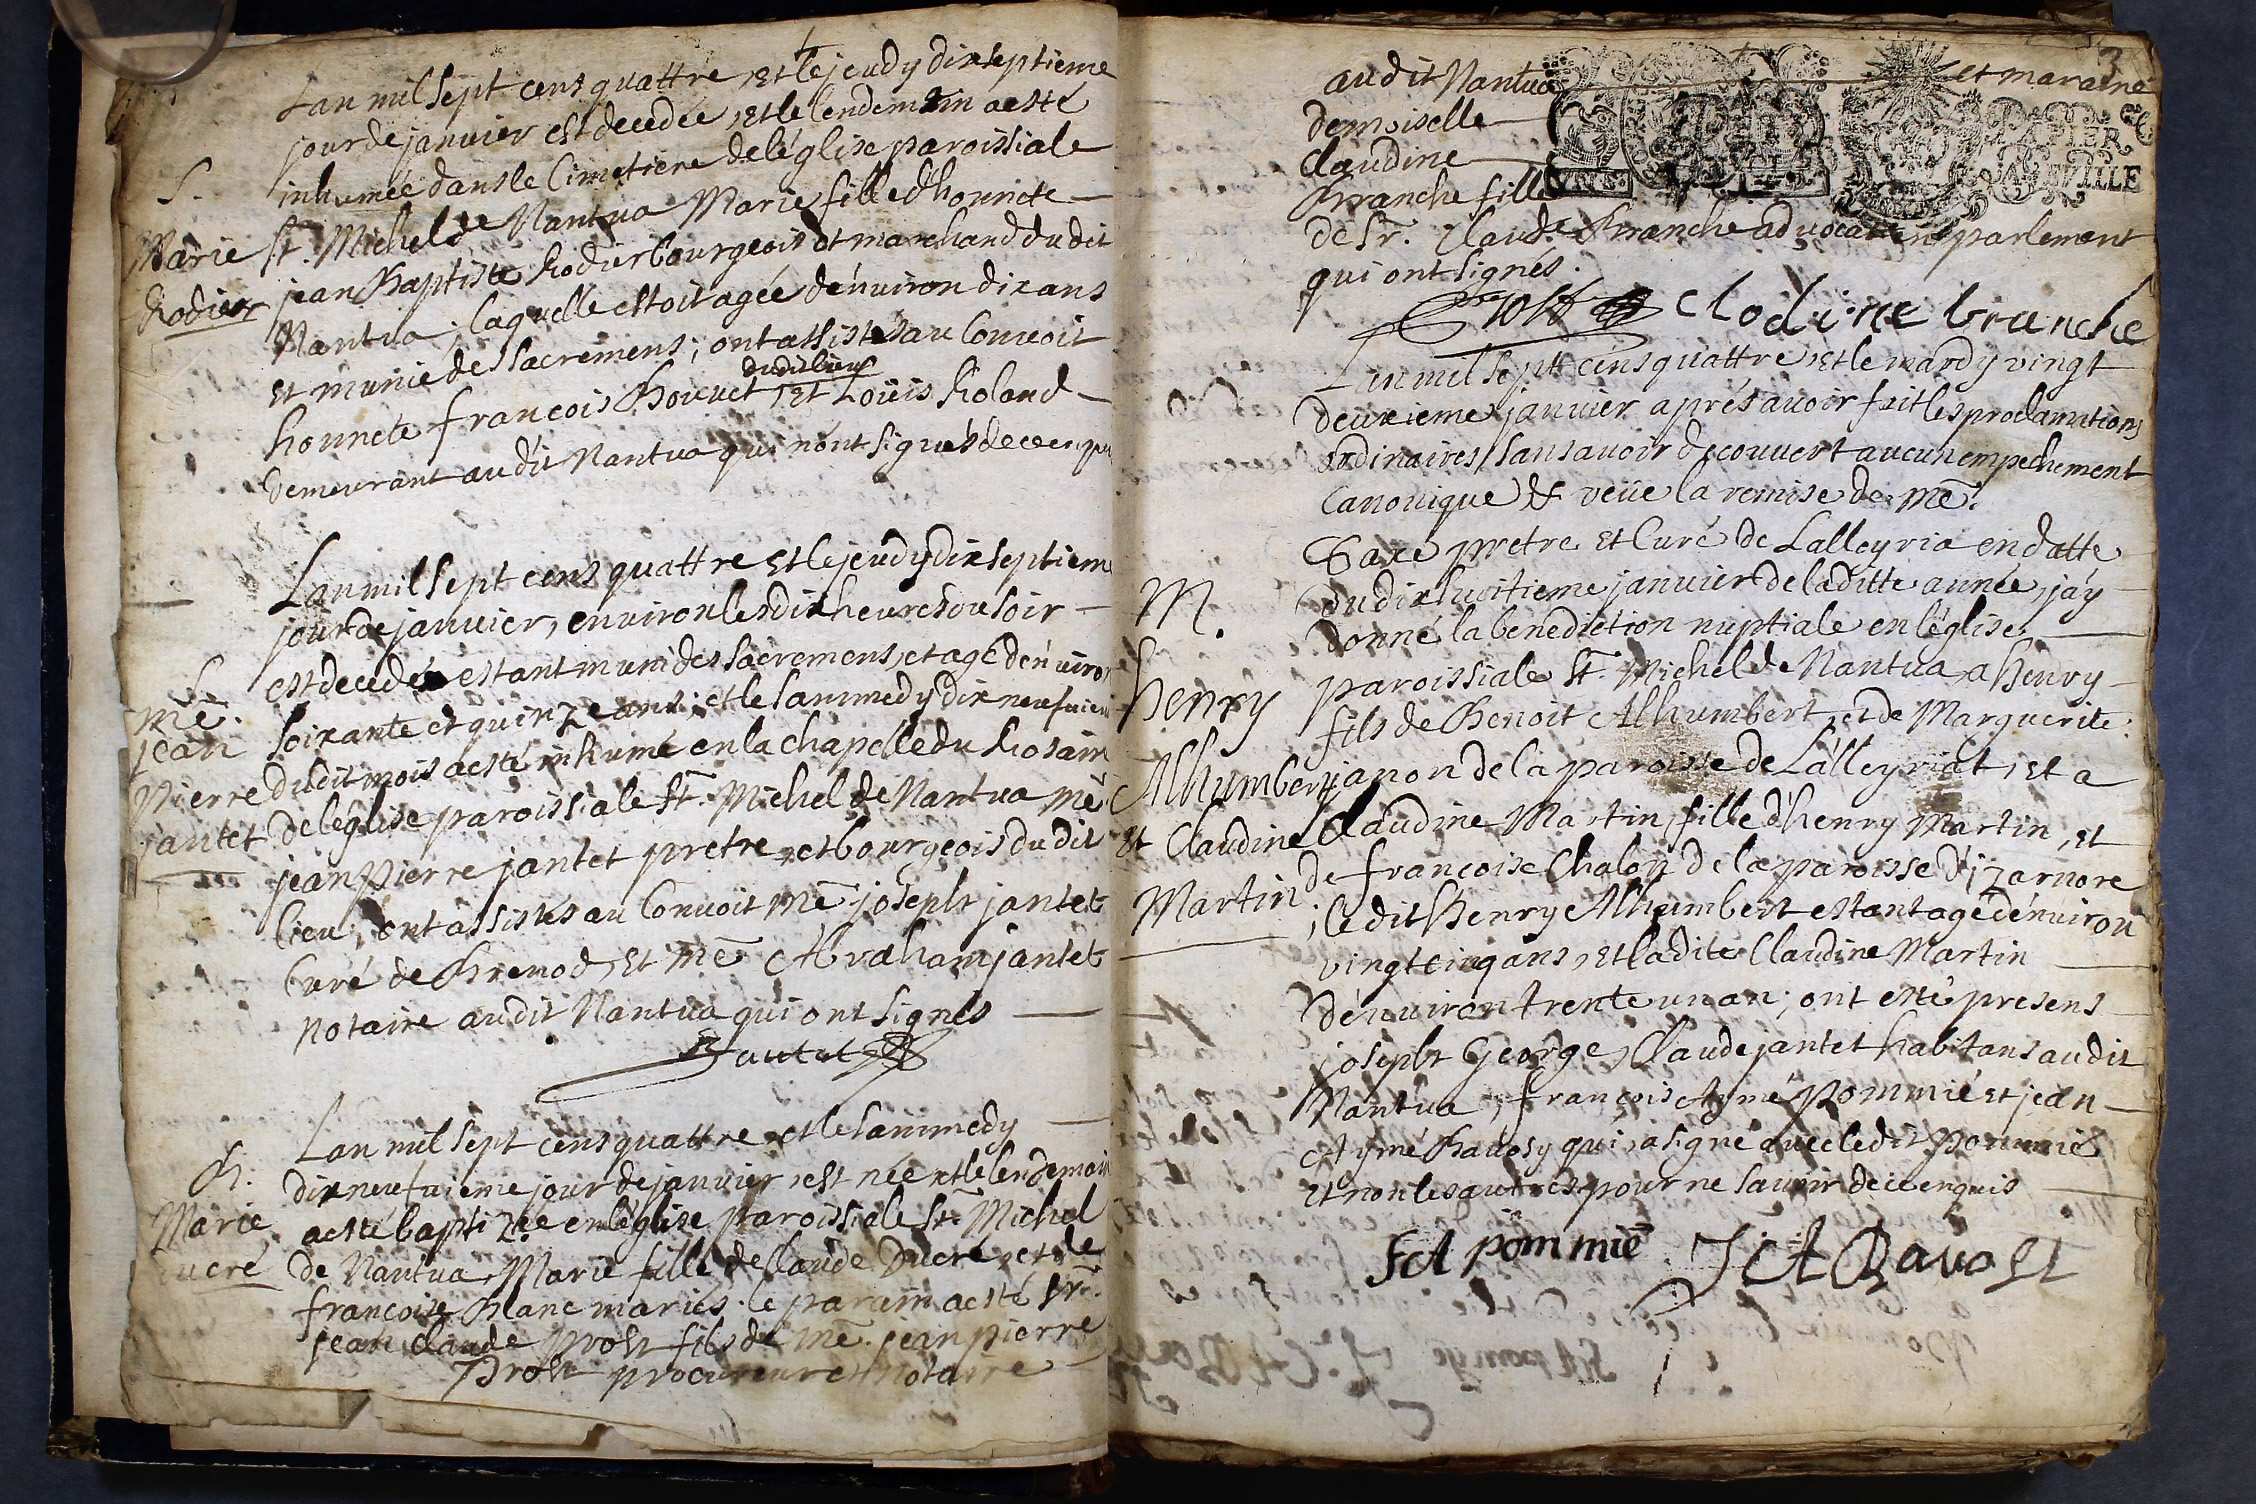 Lan mil sept cens quattre, et le jeudy dixseptieme
jour de janvier est decedée, et le lendemain a esté
inhumée dans le Cimetiere de l'église paroissiale
S.
Marie
Rodier
St. Michel de Nantua Marie fille d'honnete
jean Baptiste Rodier bourgeois et marchand du dit
Nantua; laquelle estoit agée d'environ dix ans
et munie des sacremens; ont assistés au Convoit
honnete francois Bouvet dudit lieu, et Loüis Roland
demeurant audit Nantua qui n'ont signés de ce enquis
Lan mil sept cens quattre et le jeudy dixseptieme
jour de janvier, environ les dix heures du soir
est decedé estant muni des sacremens, et agé d'environ
S.
Me.
jean
Pierre
jantet
soixante et quinze ans; et le sammedy dix neufvieme
dudit mois a esté inhumé en la chapelle du Rosaire
de l'eglise paroissiale St. Michel de Nantua Me
jean Pierre jantet pretre, et bourgeois du dit
lieu; ont assistés au Convoit Me joseph jantet
Curé de Brenod, et Me Abraham jantet
notaire audit Nantua qui ont signés
Jantet
Lan mil sept cens quattre et le sammedy
B.
Marie
ucré
dix neufvieme jour de janvier est née et le lendemain
a esté baptizée en l'église paroissiale St. Michel
de Nantua, Marie fille de Claude Ducré, et de
francoise Blanc mariés. le parain a esté Sr.
jean Claude Prost fils de Me. jean pierre
Prost procureur et notaire
3
audit Nantua et maraine
demoiselle
Claudine
Branche fille
PAPIER
de Sr. Claude Branche advocat en parlement
qui ont signés.
Prost Clodine branche
Lan mil sept cens quattre, et le mardy vingt
deuxieme janvier aprés avoir fait les proclamations
ordinaires, sans avoir decouvert aucun empechement
Canonique & veüe la remise de Me.
pretre et Curé de Lalleyria en datte
M.
henry
Alhumbert
et Claudine
Martin
du dixhuitieme janvier de la ditte année, j'ay
donné la benediction nuptiale en l'église
paroissiale St. Michel de Nantua, a henry
fils de Benoit Alhumbert, et de Marguerite
janon de la paroisse de Lálleyriat, et a
Claudine Martin, fille d'henry Martin, et
de francoise Chalon de la paroisse d'izarnore
; ledit henry Alhumbert estant agé d'environ
vingt cinq ans, et la dite Claudine Martin
d'environ trente un an; ont esté presens
joseph George, Claude jantet habitans audit
Nantua, francois Aymé Pommié et jean
Aymé Ravosy qui a signé avec ledit Pommié
et non les autres pour ne savoir de ce enquis
FA pommié JA Ravost